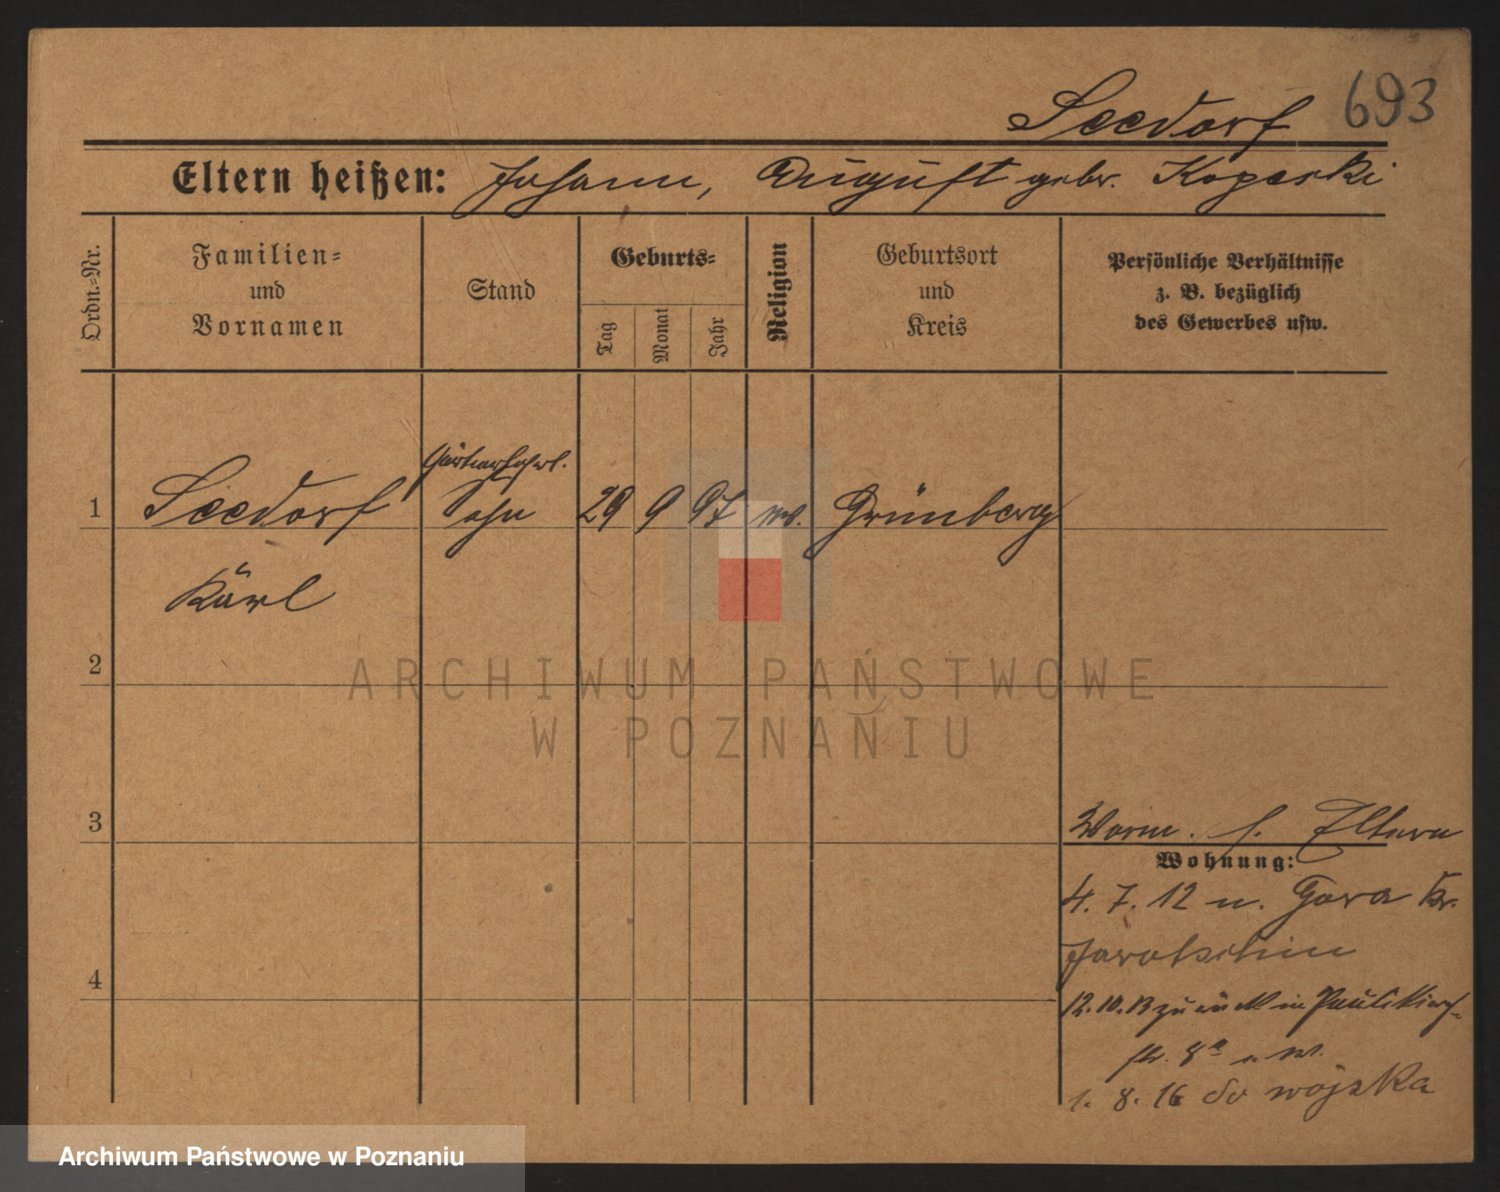 693
Seedorf
Eltern heißen: Johann, August gebr. Koperski
Ordn.=Nr.
Familien=
und
Vornamen
Stand
Geburts=
Tag
Monat
Jahr
Religion
Geburtsort
und
Kreis
Persönliche Verhältnisse
z. B. bezüglich
des Gewerbes usw.
1
Seedorf
Karl
Sohn
29
9
97
Grünberg
2
3
4
Worm. s. Eltern
Wohnung:
4. 7. 12 n. Gora Kr.
Jarotschin
12.10.13 zurück in Paulikirch-
str. 8a
1. 8. 16 do wojska
ARCHIWUM PAŃSTWOWE
W POZNANIU
Archiwum Państwowe w Poznaniu